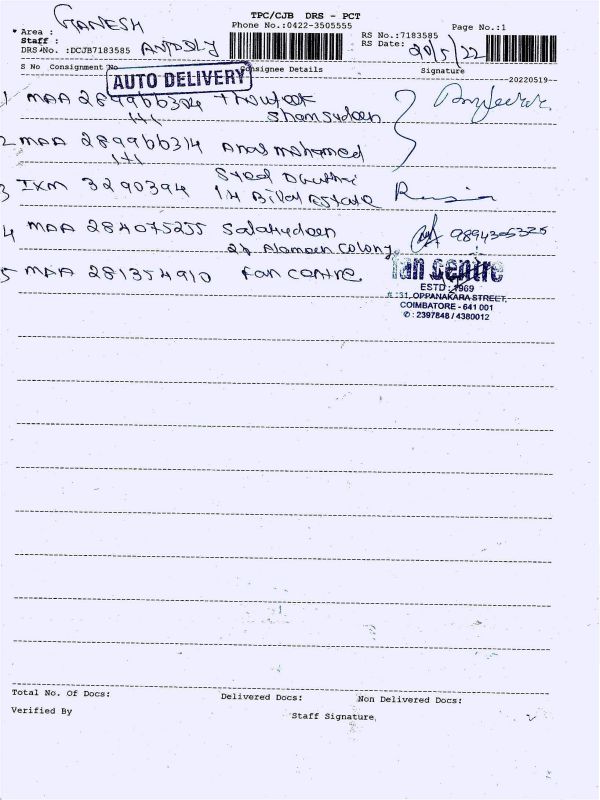 GANESH
TPC/CJB DRS - PCT
Area :
Phone No.:0422-3505555
Page No.:1
Staff :
RS No.:7183585
DRS No. :DCJB7183585
RS Date: 20/5/22
S No Consignment No
Consignee Details
Signature
AUTO DELIVERY
--20220519--
1 MAA 289966304
Shamsudeen
2 MAA 289966314 Anas mohamed
3 IXM 3290394 Syed
14 Bilal Estate
4 MAA 284075255 Salahudeen
9894305325
Alameen Colony
5 MAA 281354910 fan centre
fan centre
ESTD : 1969
# :31, OPPANAKARA STREET,
COIMBATORE - 641 001
✆ : 2397848 / 4380012
Total No. Of Docs:
Delivered Docs:
Non Delivered Docs:
Verified By
Staff Signature